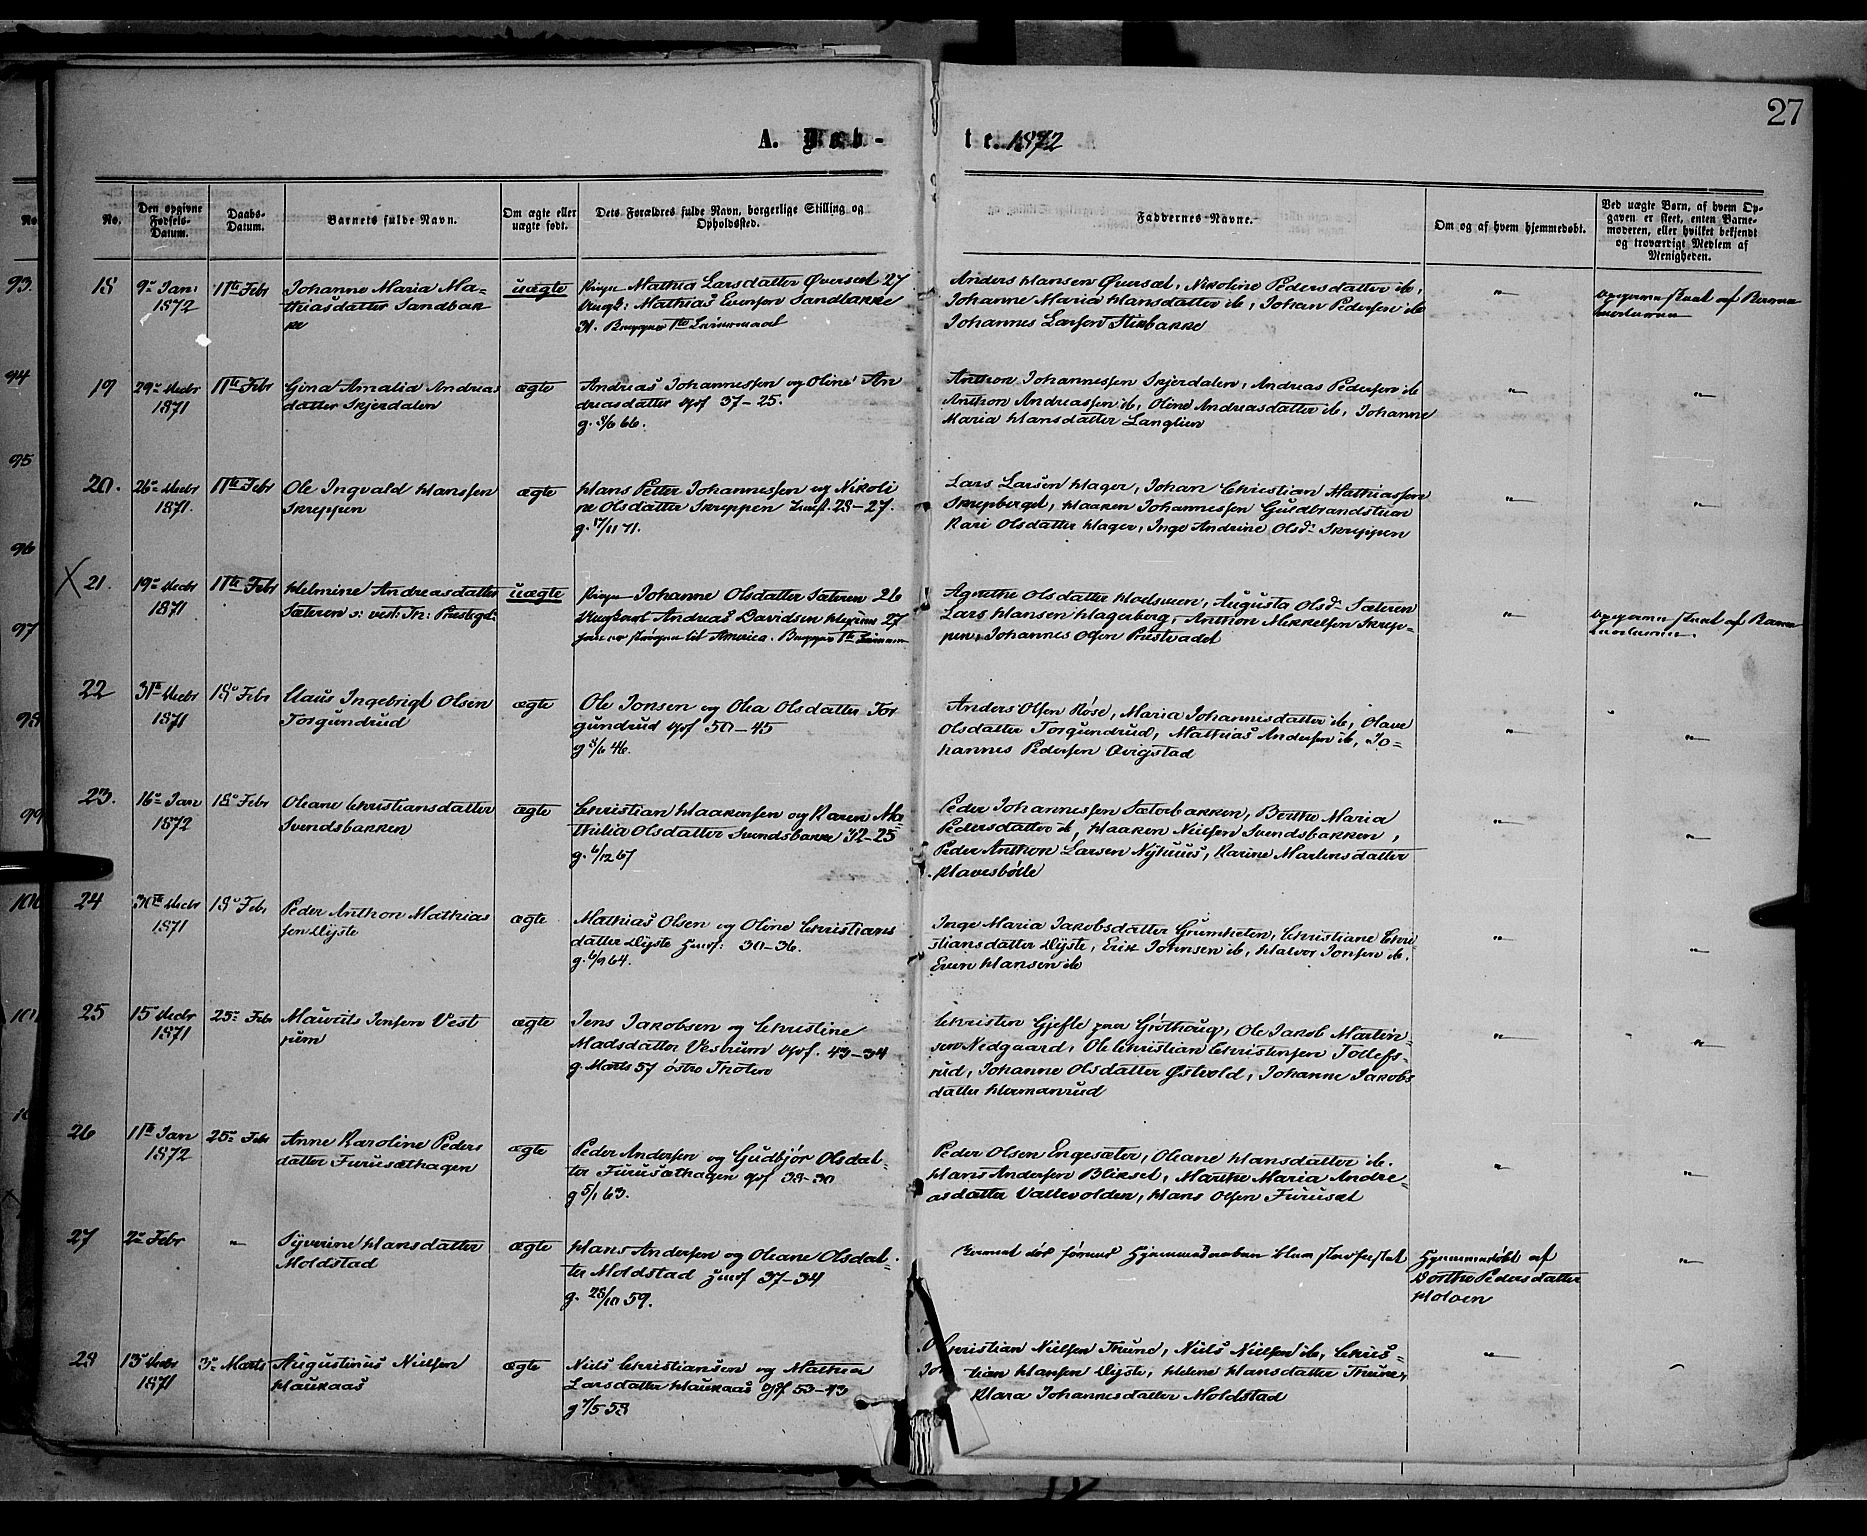 27
A. Døb-
te. 1872
No.
Den opgivne Fødsels-Datum.
Daabs-Datum.
Barnets fulde Navn.
Om ægte eller uægte født.
Dets Forældres fulde Navn, borgerlige Stilling og Opholdssted.
Faddernes Navne.
Om og af hvem hjemmedøbt.
Ved uægte Børn, af hvem Opgaven er skeet, enten Barnemoderen, eller hvilket bekjendt og troværdigt Medlem af Menigheden.
18
9de Jan:
1872
11te Febr
Johanne Maria Ma-
thiasdatter Sandbak
ke
uægte
Pigen Mathea Larsdatter Øversæt 27
Ungk: Mathias Evensen Sandbakke
31.
Anders Hansen Øversæt, Nikoline Pedersdatter ib,
Johanne Maria Hansdatter ib, Johan Pedersen ib
Johannes Larsen Stubakke
"
19
29de Decbr
1871
11te Febr
Gina Amalia Andreas
datter Skjerdalen
ægte
Andreas Johannessen og Oline An
dreasdatter 37-25.
66.
Anthon Johannessen Skjerdalen, Andreas Pedersen ib
Anthon Andreassen ib, Oline Andreasdatter ib, Johanne
Maria Hansdatter Langlien
"
"
20.
26de Decbr
1871.
11te Febr
Ole Ingvald Hanssen
Skreppen
ægte
Hans Petter Johannessen og Nikoli
ne Olsdatter Skreppen 28-27.
g. 17/11 71.
Lars Larsen Hager, Johan Christian Mathiassen
Skrepberget, Haaken Johannessen Guldbrandstuen
Kari Olsdatter Hager, Inge Andrine Olsd: Skreppen
"
"
X 21.
19de Decbr
1871
11te Febr
Helmine Andreasdatter
Sæteren
uægte
Pigen Johanne Olsdatter Sæteren 26
Ungkarl Andreas Davidsen 27
til America.
Agnethe Olsdatter, Augusta Olsd: Sæteren
Lars Hansen Hagerberg, Anthon Mikkelsen Skrep-
pen, Johannes Olsen Prestvadet
"
22
31te Decbr
1871
18de Febr
Claus Ingebrigt Olsen
Torgundrud
ægte
Ole Jonsen og Olea Olsdatter Tor
gundrud 50-45
46.
Anders Olsen Røse, Maria Johannesdatter ib, Olave
Olsdatter Torgundrud, Mathias Andersen ib, Jo-
hannes Pedersen Qvigstad
"
"
23.
16de Jan
1872
18de Febr
Oleane Christiansdatter
Svendsbakken
ægte
Christian Haakensen og Karen Ma
thilia Olsdatter Svendsbakke 32-25
g. 6/12 67
Peder Johannessen Sætorbakken, Berthe Maria
Pedersdatter ib, Haaken Nielsen Svendsbakken,
Peder Anthon Larsen Nyhuus, Karine Martensdatter
"
"
24
30te Decbr
1871
18de Febr
Peder Anthon Mathias
sen Dyste
ægte
Mathias Olsen og Oline Christians
datter Dyste 30-36.
g. 6/9 64.
Inge Maria Jakobsdatter, Christiane Chri-
stiansdatter Dyste, Erik Johnsen ib, Halvor Jonsen ib,
Even Hansen ib
"
"
25
15de Decbr
1871
25de Feb
Maurits Jensen Vest
rum
ægte
Jens Jakobsen og Christine
Madsdatter Vestrum 43-34
g. Marts 57 østre Thoten
Christen Gjefle, Ole Jakob Martin-
sen Nedgaard, Ole Christian Christensen Tollefs-
rud, Johanne Olsdatter Østvold, Johanne Jakobs
datter Hermanrud
"
"
26
11te Jan
1872
25de Febr
Anne Karoline Peders
datter Furusæthagen
ægte
Peder Andersen og Gudbjør Olsdat-
ter Furusæthagen 38-30
g 5/1 63.
Peder Olsen Engesæter, Oleane Hansdatter ib.
Hans Andersen Blikset, Marthe Maria Andre-
asdatter Vattevolden, Hans Olsen Furusæt
"
"
27
2de Febr
"
Syverine Hansdatter
Moldstad
ægte
Hans Andersen og Oleane Olsdat-
ter Moldstad 37-34
g. 28/10 59.
Barnet død førend Hjemmedaaben blev stadfæstet
Hjemmedøbt af
Dorthe Pedersdatter
Holoen
"
28
13de Decbr
1871
3de Marts
Augustinus Nielsen
Haukaas
ægte
Niels Christiansen og Mathea
Larsdatter Haukaas 53-43
58
Christian Nielsen Thune, Niels Nielsen ib, Chris-
tian Hansen Dyste, Helene Hansdatter Thune,
Klara Johannesdatter Moldstad
"